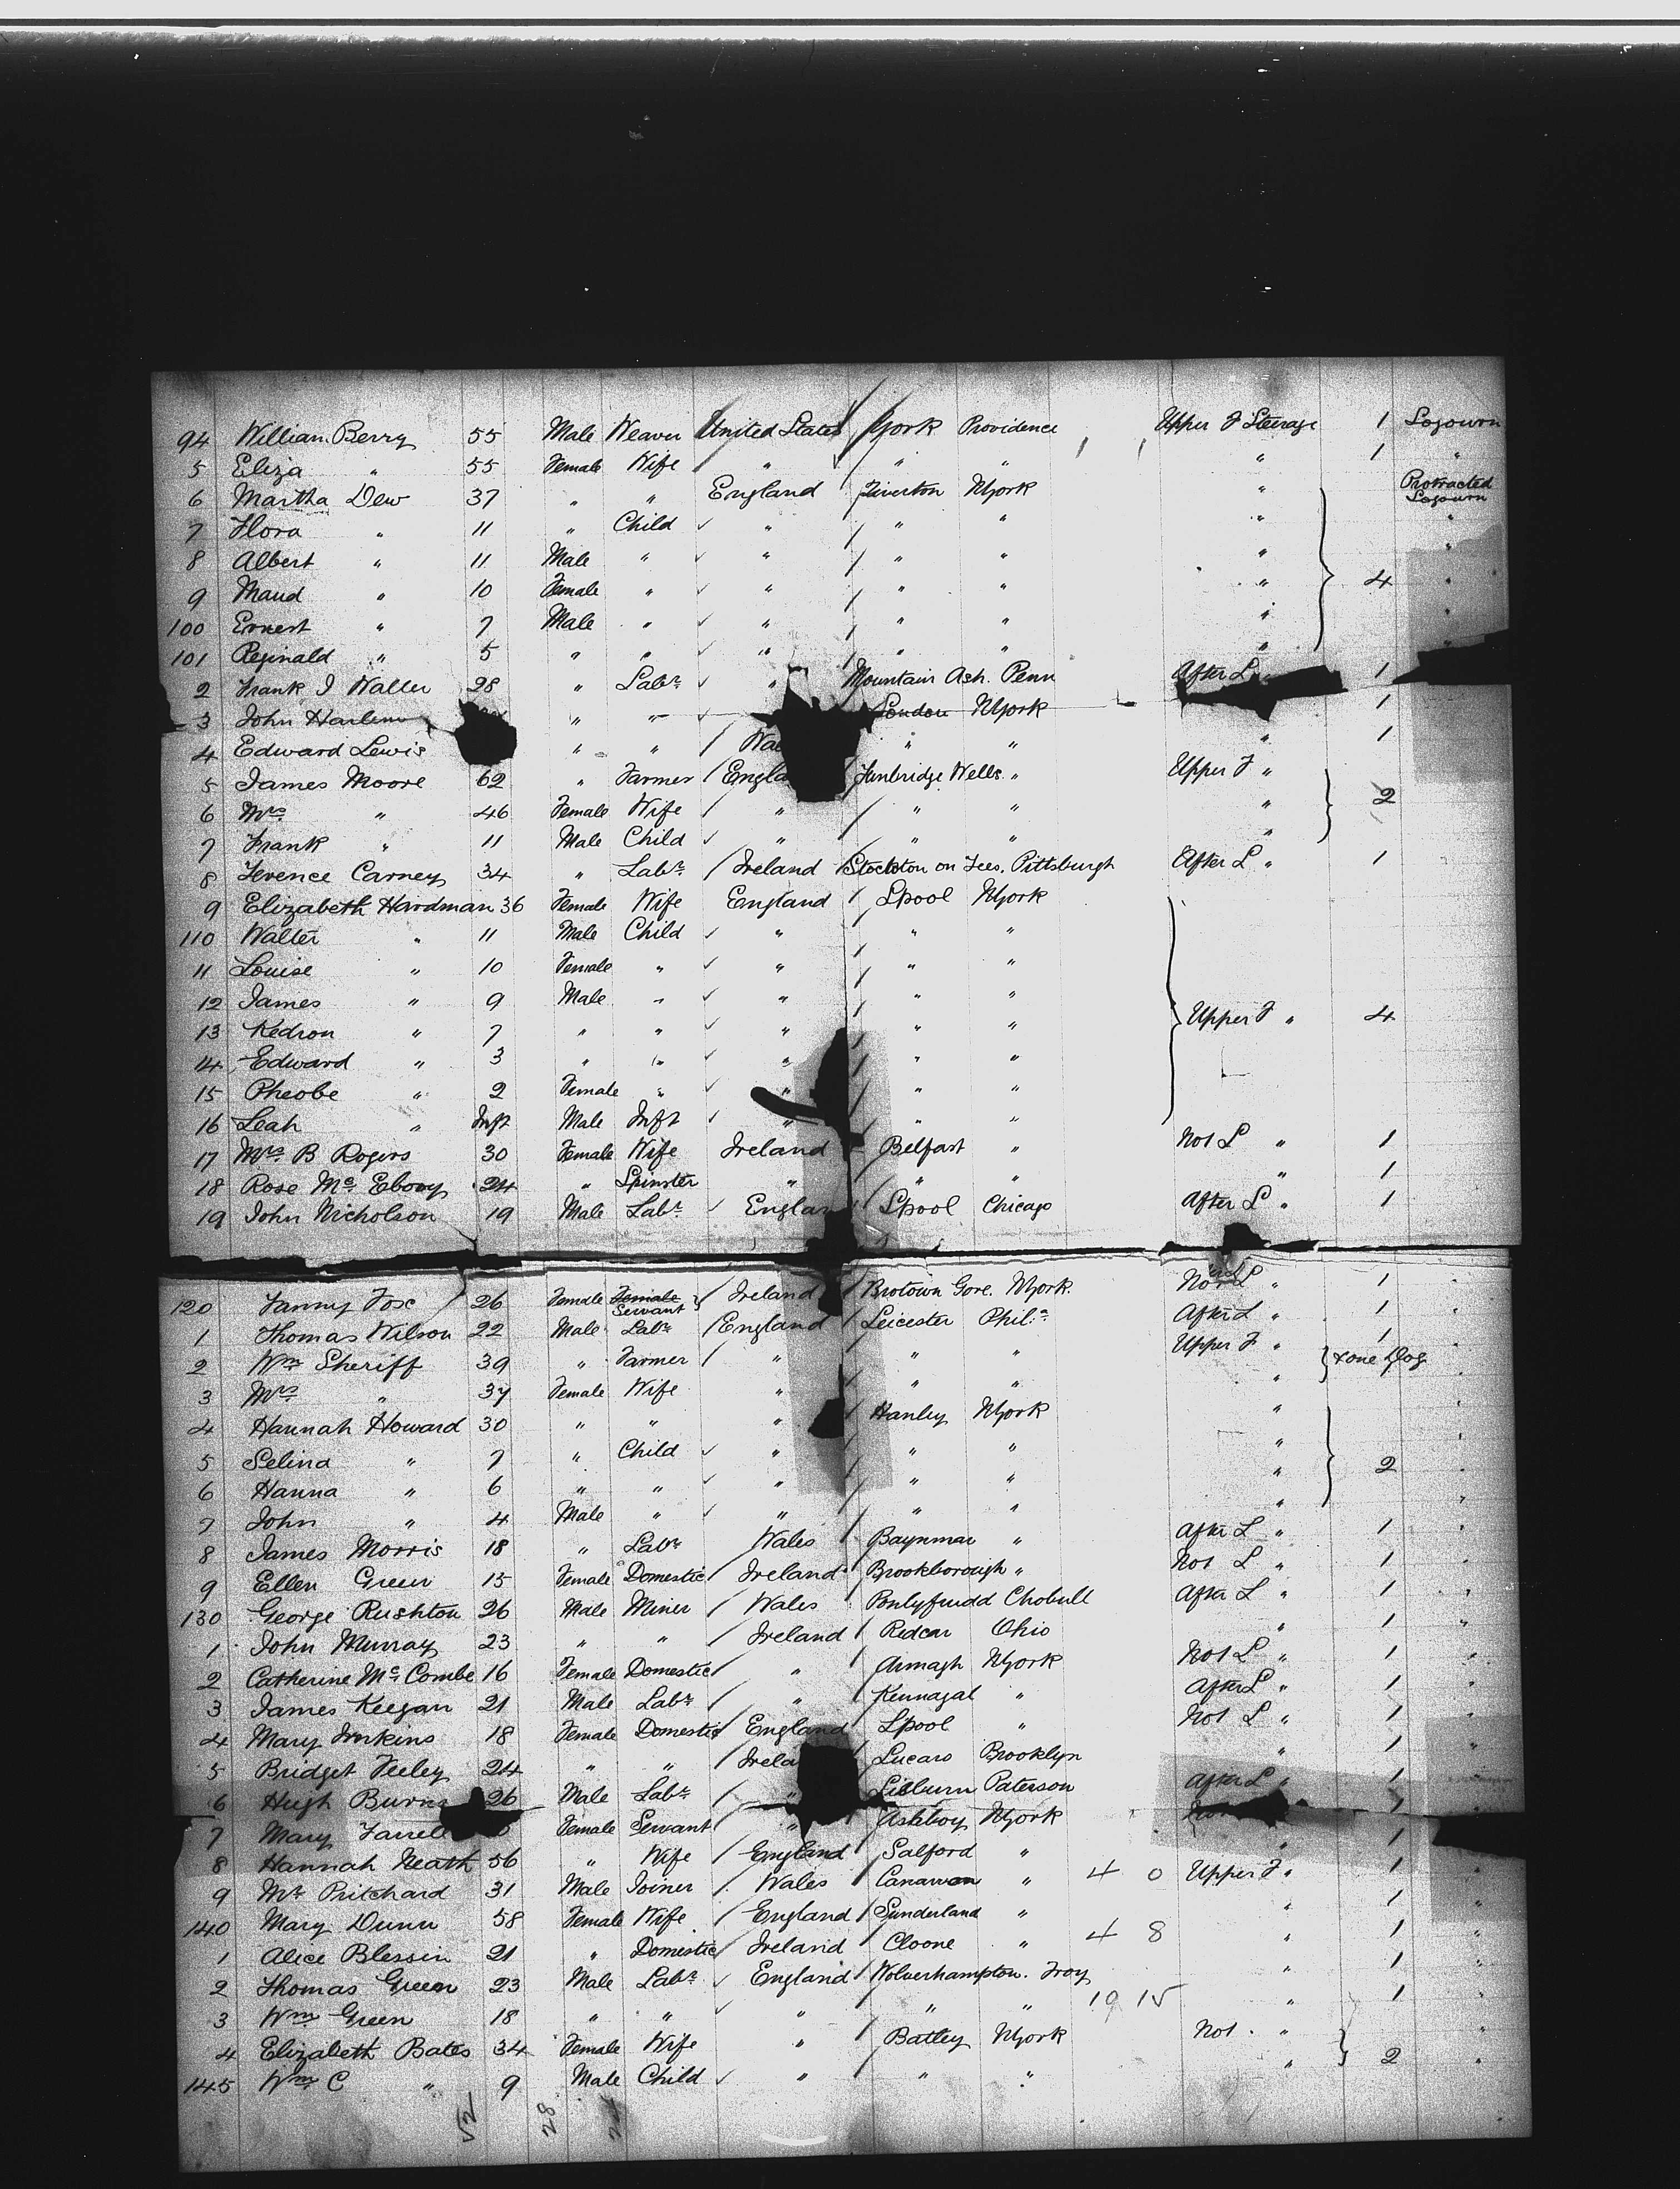 94 William Berry 55 Male Weaver United States York Providence Upper F Steerage 1 Sojourn
5 Eliza " 55 Female Wife " " " " 1 "
6 Martha Dew 37 " " England Tiverton NYork " Protracted Sojourn
7 Flora " 11 " Child " " " " "
8 Albert " 11 Male " " " " " "
9 Maud " 10 Female " " " " " 4 "
100 Ernest " 7 Male " " " " " "
101 Reginald " 5 " " " " " " "
2 Frank J Waller 28 " Labr " Mountain Ash. Penn After L " 1
3 John " " London NYork 1
4 Edward Lewis " " " " " 1
5 James Moore 62 " Farmer Tunbridge Wells " Upper F "
6 Mrs " 46 Female Wife " " " " 2
7 Frank " 11 Male Child " " " "
8 Terence Carney 34 " Labr Ireland Stockton on Tees. Pittsburgh After L " 1
9 Elizabeth Hardman 36 Female Wife England Lpool NYork
110 Walter " 11 Male Child " " "
11 Louise " 10 Female " " " "
12 James " 9 Male " " " "
13 Kedron " 7 " " " " " Upper F " 4
14 Edward " 3 " " " " "
15 Pheobe " 2 Female " " " "
16 Leah " Inft Male Inft " " "
17 Mrs B Rogers 30 Female Wife Ireland Belfast " Not L " 1
18 Rose 24 " Spinster " " " " 1
19 John Nicholson 19 Male Labr Lpool Chicago After L " 1
120 Fanny Fox 26 Female Female Servant Ireland NYork. L " 1
1 Thomas Wilson 22 Male Labr England Leicester Phil:a After L " 1
2 Wm Sheriff 39 " Farmer " " " Upper F " 1
3 Mrs " 37 Female Wife " " " " & one Dog
4 Hannah Howard 30 " " " Hanley NYork "
5 Selina " 7 " Child " " " "
6 Hanna " 6 " " " " " " 2
7 John " 4 Male " " " " "
8 James Morris 18 " Labr Wales " After L " 1
9 Ellen Green 15 Female Domestic Ireland Brookborough " Not L " 1
130 George Rushton 26 Male Miner Wales After L " 1
1 John Murray 23 " " Ireland Redcar Ohio " 1
2 Catherine McCombe 16 Female Domestic " Armagh NYork Not L " 1
3 James Keegan 21 Male Labr " " After L " 1
4 Mary Jenkins 18 Female Domestic England Lpool " Not L " 1
5 Bridget Feeley 24 " " Brooklyn " 1
6 Hugh Burns 26 Male Labr " Lisburn Paterson After L " 1
7 Mary Female Servant " NYork 1
8 Hannah Heath 56 " Wife England Salford " " 1
9 Mr Pritchard 31 Male Joiner Wales " 4 0 Upper F " 1
140 Mary Dunn 58 Female Wife England Sunderland " " 1
1 Alice Blessin 21 " Domestic Ireland Cloone " 4 8 " 1
2 Thomas Green 23 Male Labr England Wolverhampton. Troy " 1
3 Wm Green 18 " " " " " 19 15 " 1
4 Elizabeth Bates 34 Female Wife " Batley NYork Not "
145 Wm C " 9 Male Child " " " " 2
52 28